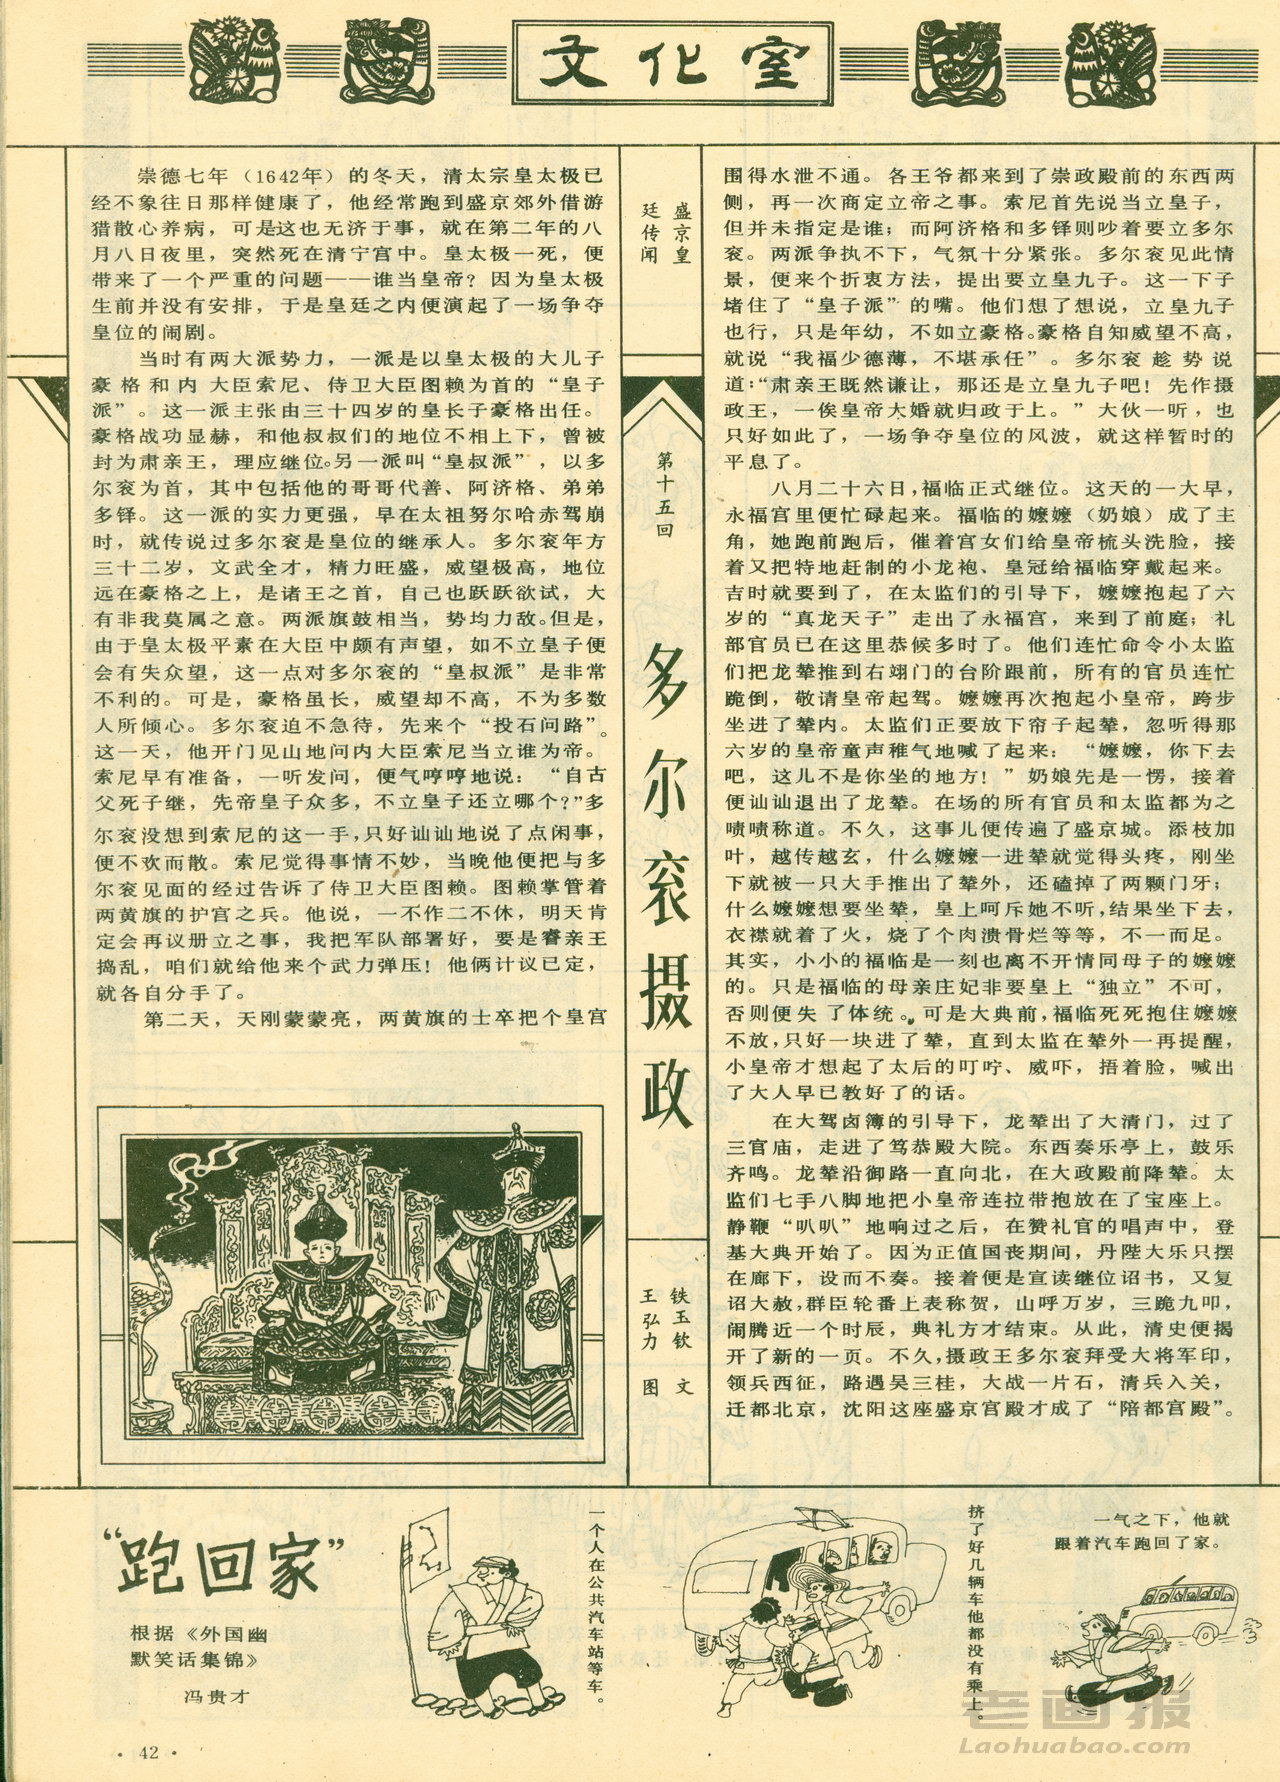 文化室
崇德七年（1642年）的冬天，清太宗皇太极已
经不象往日那样健康了，他经常跑到盛京郊外借游
猎散心养病，可是这也无济于事，就在第二年的八
月八日夜里，突然死在清宁宫中。皇太极一死，便
带来了一个严重的问题——谁当皇帝？因为皇太极
生前并没有安排，于是皇廷之内便演起了一场争夺
皇位的闹剧。
当时有两大派势力，一派是以皇太极的大儿子
豪格和内大臣索尼、侍卫大臣图赖为首的“皇子
派”。这一派主张由三十四岁的皇长子豪格出任。
豪格战功显赫，和他叔叔们的地位不相上下，曾被
封为肃亲王，理应继位。另一派叫“皇叔派”，以多
尔衮为首，其中包括他的哥哥代善、阿济格、弟弟
多铎。这一派的实力更强，早在太祖努尔哈赤驾崩
时，就传说过多尔衮是皇位的继承人。多尔衮年方
三十二岁，文武全才，精力旺盛，威望极高，地位
远在豪格之上，是诸王之首，自己也跃跃欲试，大
有非我莫属之意。两派旗鼓相当，势均力敌。但是，
由于皇太极平素在大臣中颇有声望，如不立皇子便
会有失众望，这一点对多尔衮的“皇叔派”是非常
不利的。可是，豪格虽长，威望却不高，不为多数
人所倾心。多尔衮迫不急待，先来个“投石问路”。
这一天，他开门见山地问内大臣索尼当立谁为帝。
索尼早有准备，一听发问，便气哼哼地说：“自古
父死子继，先帝皇子众多，不立皇子还立哪个？”多
尔衮没想到索尼的这一手，只好讪讪地说了点闲事，
便不欢而散。索尼觉得事情不妙，当晚他便把与多
尔衮见面的经过告诉了侍卫大臣图赖。图赖掌管着
两黄旗的护宫之兵。他说，一不作二不休，明天肯
定会再议册立之事，我把军队部署好，要是睿亲王
捣乱，咱们就给他来个武力弹压！他俩计议已定，
就各自分手了。
第二天，天刚蒙蒙亮，两黄旗的士卒把个皇宫
盛京皇
廷传闻
第十五回
多尔衮摄政
铁玉钦 文
王弘力 图
围得水泄不通。各王爷都来到了崇政殿前的东西两
侧，再一次商定立帝之事。索尼首先说当立皇子，
但并未指定是谁；而阿济格和多铎则吵着要立多尔
衮。两派争执不下，气氛十分紧张。多尔衮见此情
景，便来个折衷方法，提出要立皇九子。这一下子
堵住了“皇子派”的嘴。他们想了想说，立皇九子
也行，只是年幼，不如立豪格。豪格自知威望不高，
就说“我福少德薄，不堪承任”。多尔衮趁势说
道：“肃亲王既然谦让，那还是立皇九子吧！先作摄
政王，一俟皇帝大婚就归政于上。”大伙一听，也
只好如此了，一场争夺皇位的风波，就这样暂时的
平息了。
八月二十六日，福临正式继位。这天的一大早，
永福宫里便忙碌起来。福临的嬷嬷（奶娘）成了主
角，她跑前跑后，催着宫女们给皇帝梳头洗脸，接
着又把特地赶制的小龙袍、皇冠给福临穿戴起来。
吉时就要到了，在太监们的引导下，嬷嬷抱起了六
岁的“真龙天子”走出了永福宫，来到了前庭；礼
部官员已在这里恭候多时了。他们连忙命令小太监
们把龙辇推到右翊门的台阶跟前，所有的官员连忙
跪倒，敬请皇帝起驾。嬷嬷再次抱起小皇帝，跨步
坐进了辇内。太监们正要放下帘子起辇，忽听得那
六岁的皇帝童声稚气地喊了起来：“嬷嬷，你下去
吧，这儿不是你坐的地方！”奶娘先是一愣，接着
便讪讪退出了龙辇。在场的所有官员和太监都为之
啧啧称道。不久，这事儿便传遍了盛京城。添枝加
叶，越传越玄，什么嬷嬷一进辇就觉得头疼，刚坐
下就被一只大手推出了辇外，还磕掉了两颗门牙；
什么嬷嬷想要坐辇，皇上呵斥她不听，结果坐下去，
衣襟就着了火，烧了个肉溃骨烂等等，不一而足。
其实，小小的福临是一刻也离不开情同母子的嬷嬷
的。只是福临的母亲庄妃非要皇上“独立”不可，
否则便失了体统。可是大典前，福临死死抱住嬷嬷
不放，只好一块进了辇，直到太监在辇外一再提醒，
小皇帝才想起了太后的叮咛、威吓，捂着脸，喊出
了大人早已教好了的话。
在大驾卤簿的引导下，龙辇出了大清门，过了
三官庙，走进了笃恭殿大院。东西奏乐亭上，鼓乐
齐鸣。龙辇沿御路一直向北，在大政殿前降辇。太
监们七手八脚地把小皇帝连拉带抱放在了宝座上。
静鞭“叭叭”地响过之后，在赞礼官的唱声中，登
基大典开始了。因为正值国丧期间，丹陛大乐只摆
在廊下，设而不奏。接着便是宣读继位诏书，又复
诏大赦，群臣轮番上表称贺，山呼万岁，三跪九叩，
闹腾近一个时辰，典礼方才结束。从此，清史便揭
开了新的一页。不久，摄政王多尔衮拜受大将军印，
领兵西征，路遇吴三桂，大战一片石，清兵入关，
迁都北京，沈阳这座盛京宫殿才成了“陪都宫殿”。
“跑回家”
根据《外国幽
默笑话集锦》
冯贵才
一个人在公共汽车站等车。
挤了好几辆车他都没有乘上。
一气之下，他就
跟着汽车跑回了家。
·42·
老画报
Laohuabao.com